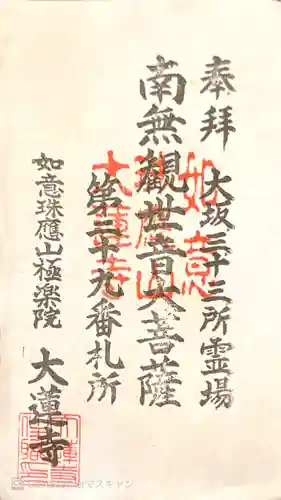 奉拝 大坂三十三所霊場
南無觀世音大菩薩
第三十九番札所
如意珠應山極楽院 大蓮寺
如意
珠應山
大蓮寺